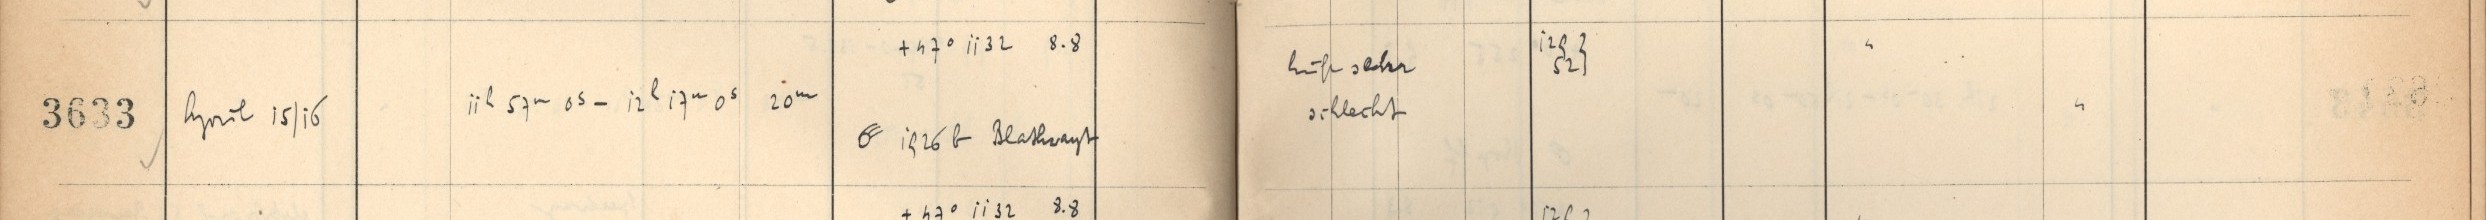 +47° 1132 8.8
3633 April 15/16 11h 57m 0s – 12h 17m 0s 20m
☄ 1926 b Blathwayt
Luft sehr
schlecht
52}
"
"
+47° 1132 8.8